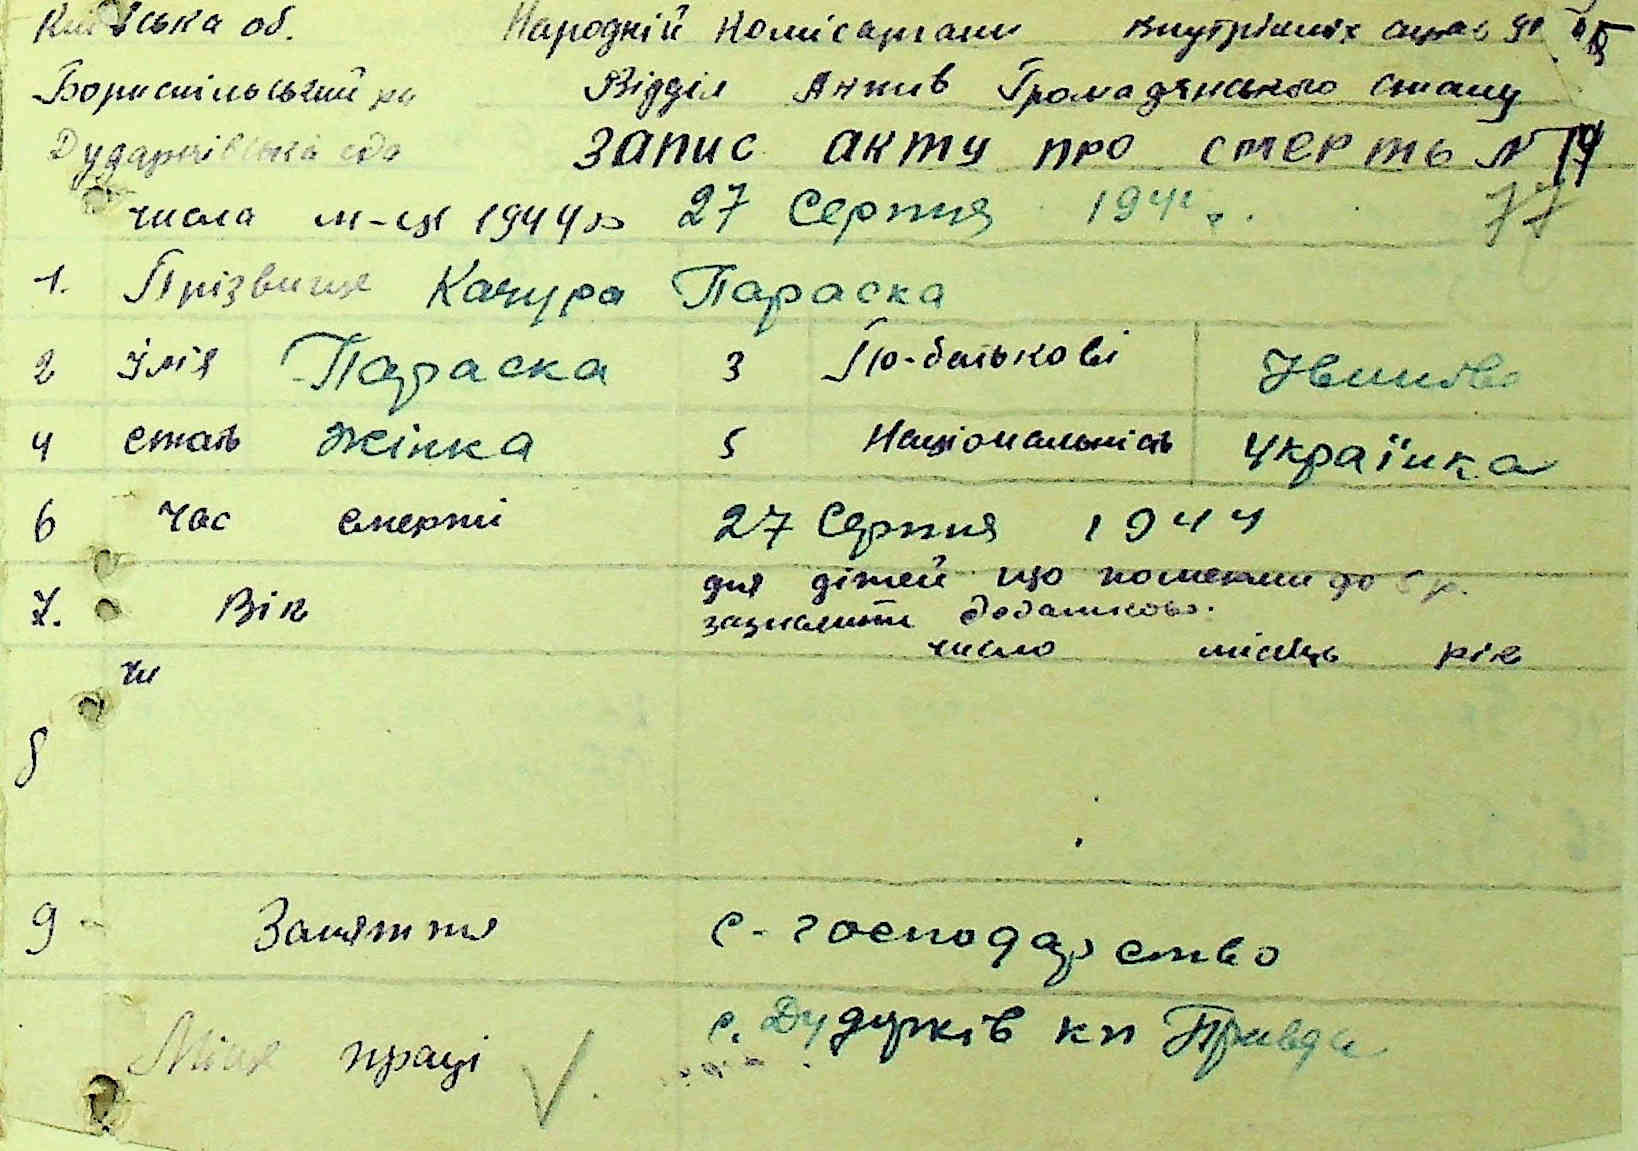 Київська об. Народній Комісаріат Внутрішніх справ
Бориспільський Відділ Актив Громадянського Стану
Дударківська Запис акту про смерть №
77
числа м-ця 1944 р 27 Серпня 1944 г.
1. Прізвище Качура Параска
2 Імія Параска 3 По-батькові
4 стать Жінка 5 Національність Українка
6 Час смерті 27 Серпня 1944
7. Вік для дітей що померли до 5 р.
зазначити додатково.
число місяць рік
8
9 - Заняття С-господарство
Місце праці с. Дударків кп Правда